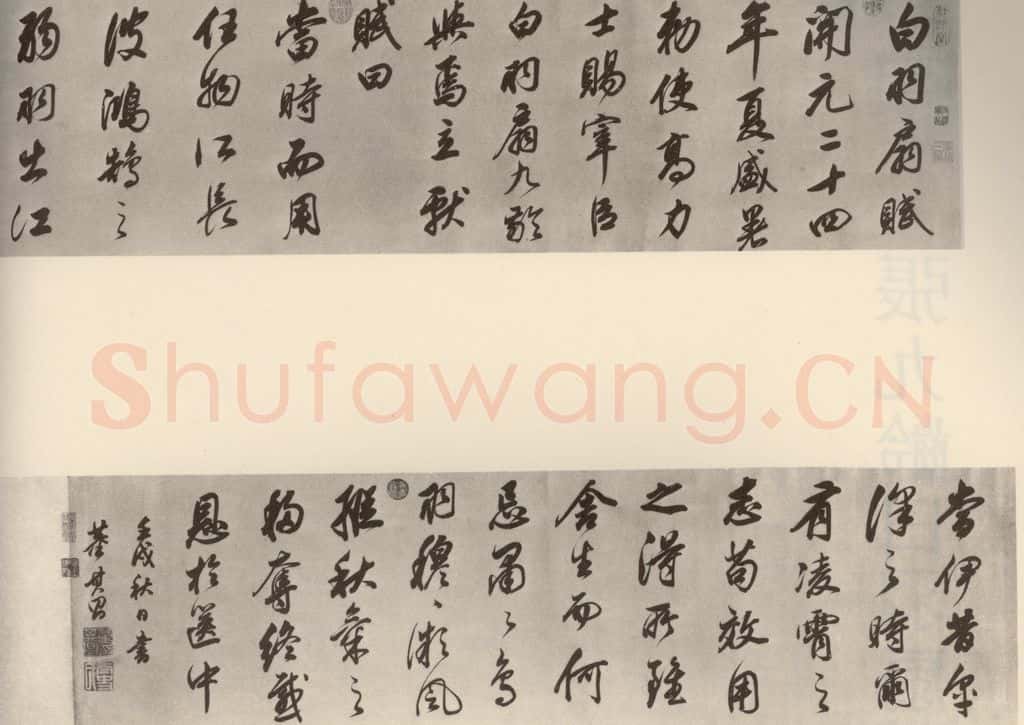 白羽扇賦
開元二十四
年夏盛暑
勅使高力
士賜宰臣
白羽扇九齡
與焉立獻
賦曰
當時而用
任物所長
彼鴻鵠之
弱羽出江
Shufawang.CN
當伊昔皋
澤之時爾
有凌霄之
志苟效用
之得所雖
舍生而何
忌肅々
羽穆々風
縱秋氣之
移奪終感
恩於篋中
壬戌秋日書
董其昌